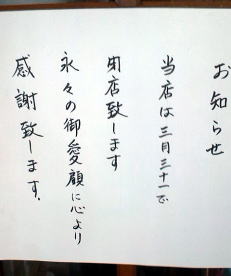 お知らせ
当店は三月三十一で
閉店致します
永々の御愛顧に心より
感謝致します。